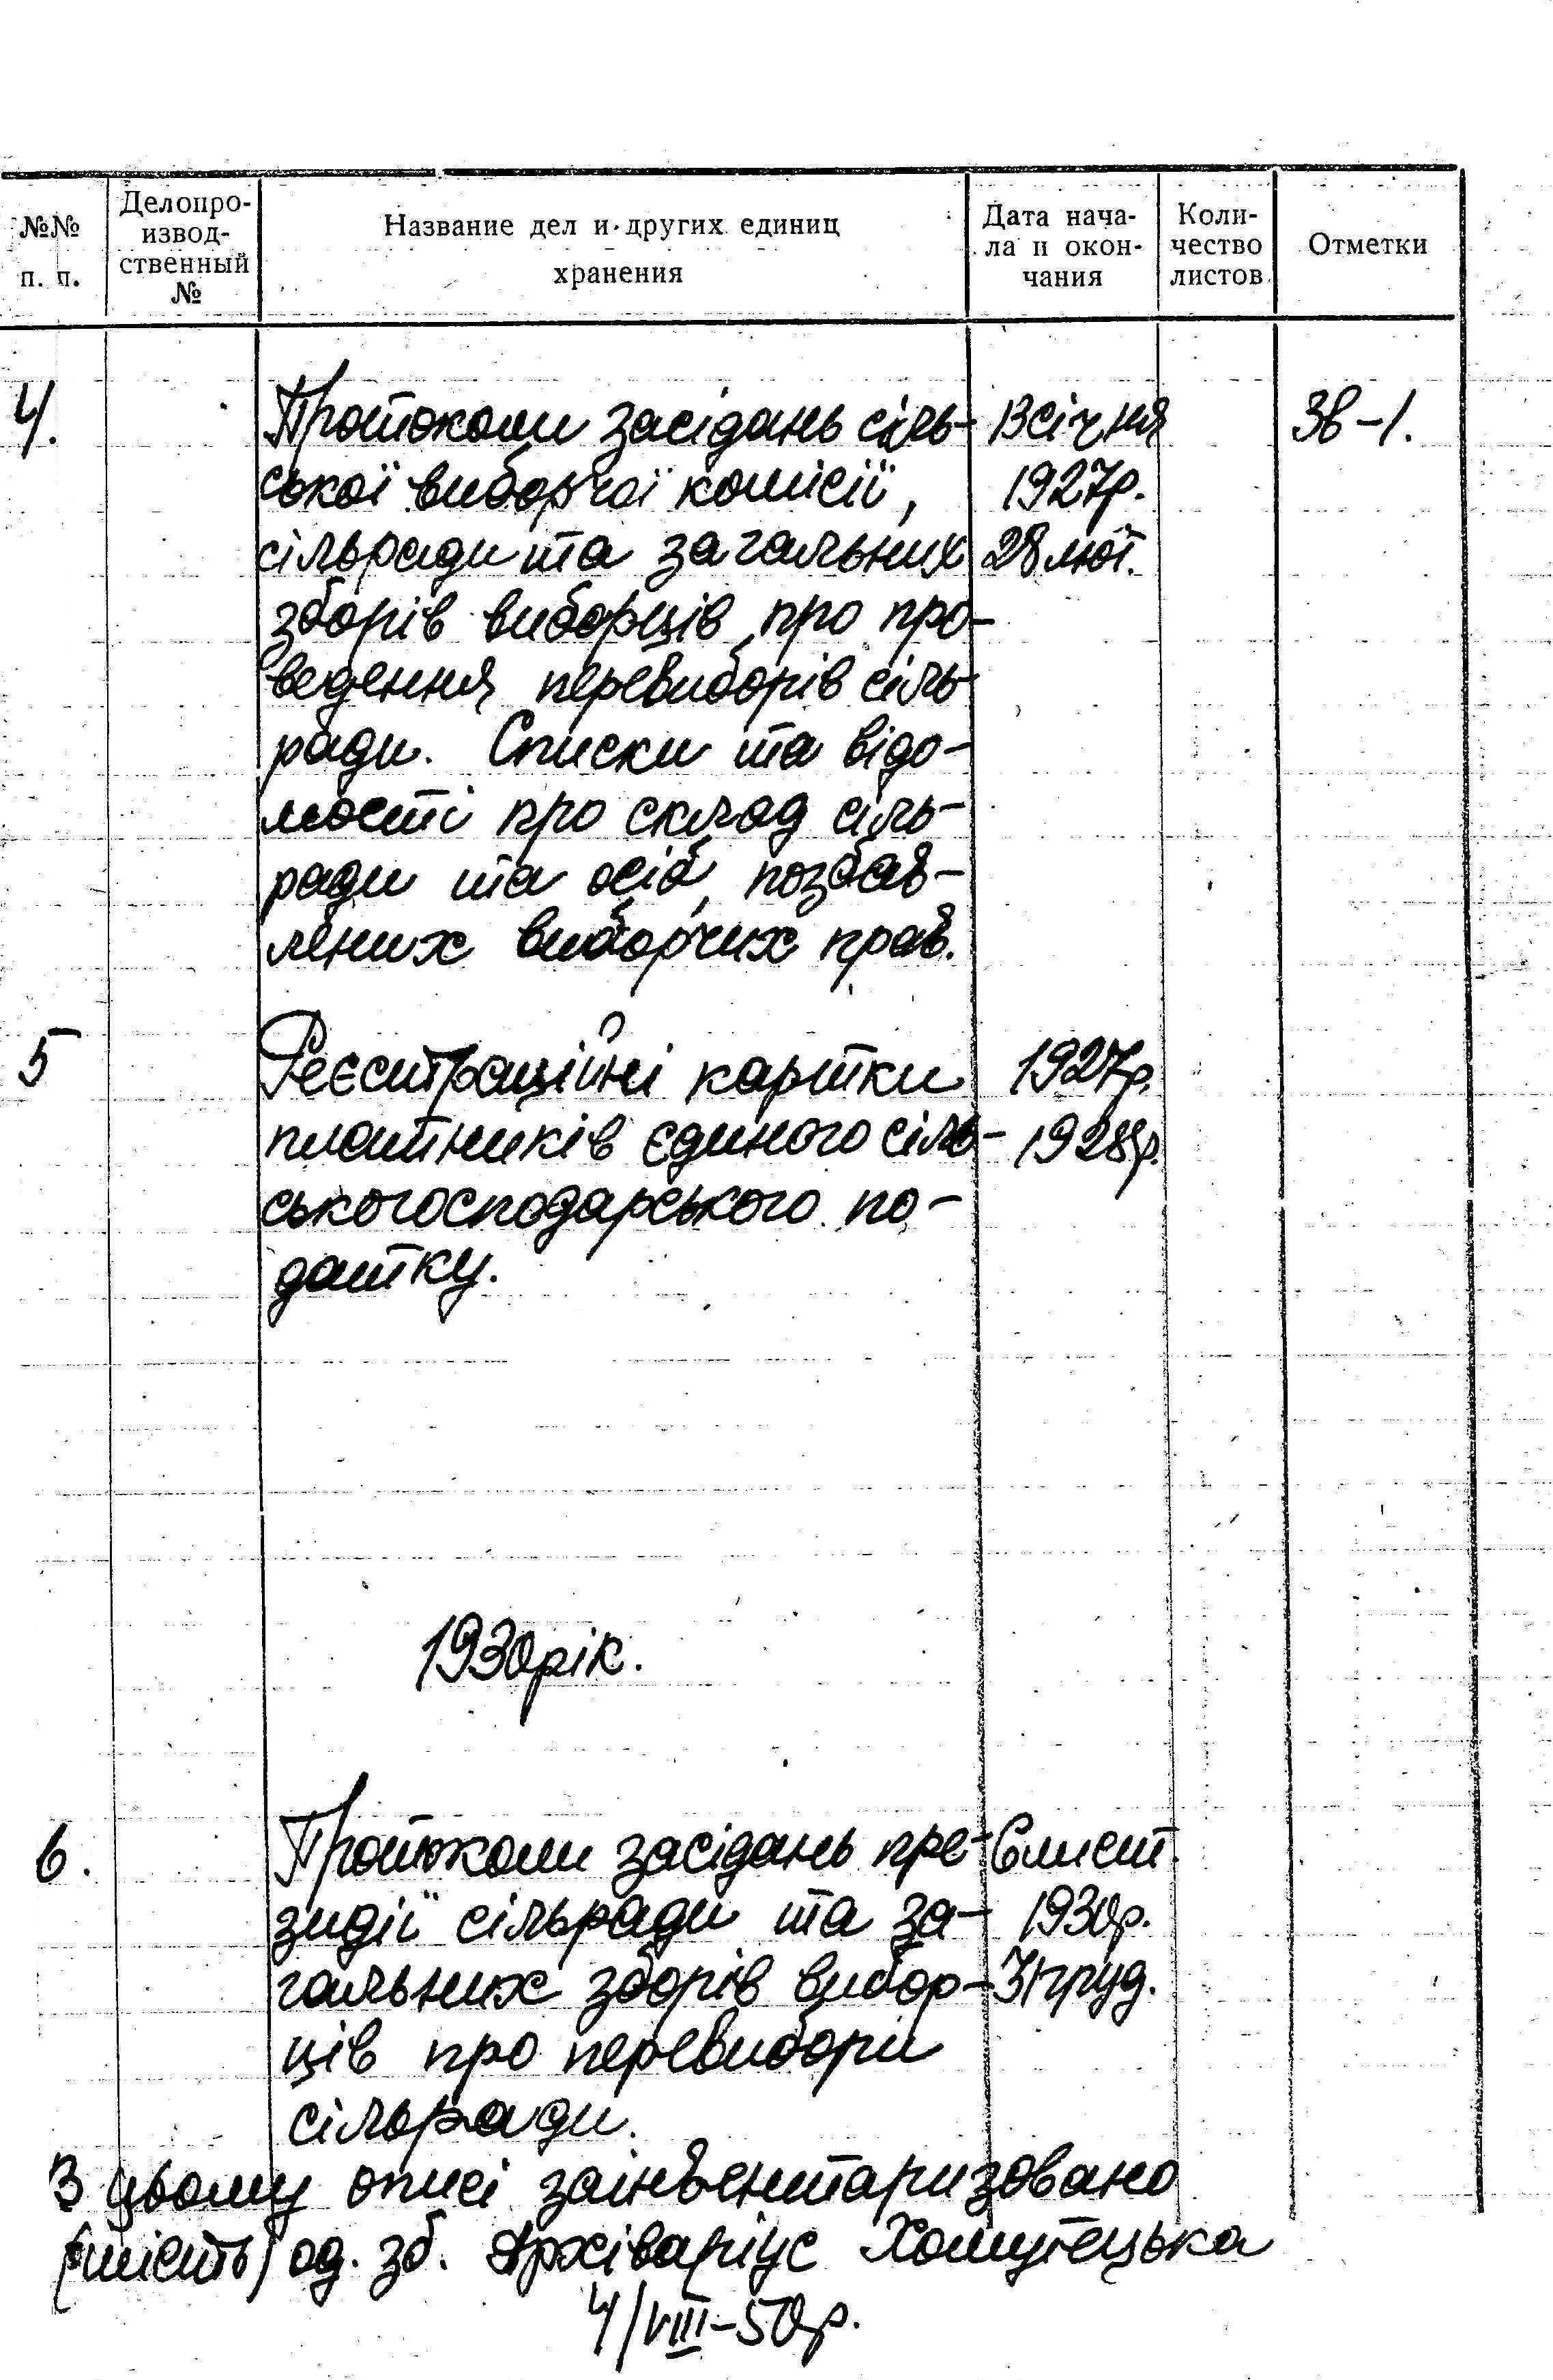 №№ п. п.
Делопро-
извод-
ственный
№
Название дел и других единиц
хранения
Дата нача-
ла и окон-
чания
Коли-
чество
листов
Отметки
4. Протоколи засідань сіль- 13 січня Зв-1.
ської виборчої комісії, 1927р.
сільради та загальних 28 лют.
зборів виборців про про-
ведення перевиборів сіль
ради. Списки та відо-
мості про склад сіль-
ради та осіб, позбав-
лених виборчих прав.
5 Реєстраційні картки 1927р.
платників єдиного сіль- 1928р.
ськогосподарського по-
датку.
1930 рік.
6. Протоколи засідань пре- 6 лист.
зидії сільради та за- 1930р.
гальних зборів вибор- 31 груд.
ців про перевибори
сільради.
В цьому описі заінвентаризовано
(шість) од. зб. Архіваріус Хомутецька
4/VIII-50р.